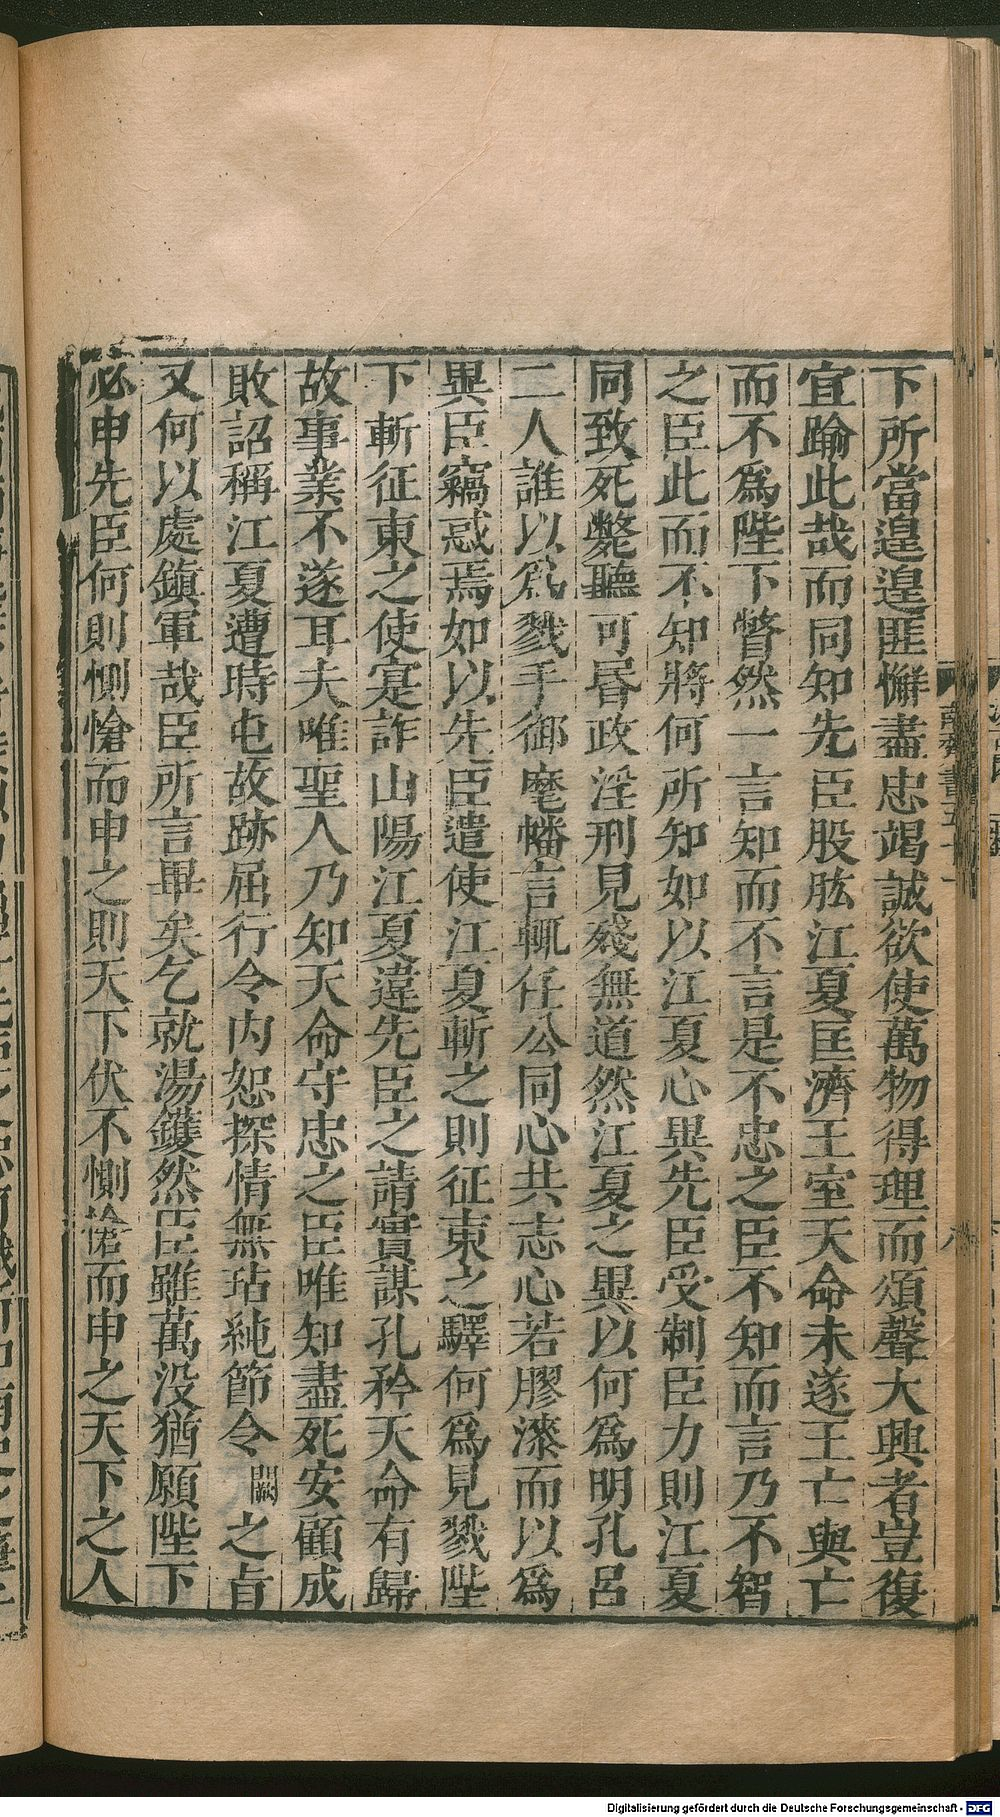 下所當遑遑匪懈盡忠竭誠欲使萬物得理而頌聲大興者豈復
宜踰此哉而同知先臣股肱江夏匡濟王室天命未遂王亡與亡
而不爲陛下瞥然一言知而不言是不忠之臣不知而言乃不智
之臣此而不知將何所知如以江夏心異先臣受制臣力則江夏
同致死斃聽可昏政淫刑見殘無道然江夏之異以何爲明孔呂
二人誰以爲戮手御麾幡言輒任公同心共志心若膠漆而以爲
異臣竊惑焉如以先臣遣使江夏斬之則征東之驛何爲見戮陛
下斬征東之使寔詐山陽江夏違先臣之請實謀孔矜天命有歸
故事業不遂耳夫唯聖人乃知天命守忠之臣唯知盡死安顧成
敗詔稱江夏遭時屯故跡屈行令内恕探情無玷純節令闕之旨
又何以處鎮軍哉臣所言畢矣乞就湯鑊然臣雖萬没猶願陛下
必申先臣何則惻愴而申之則天下伏不惻愴而申之天下之人
南齊書五十
八
Digitalisierung gefördert durch die Deutsche Forschungsgemeinschaft - DFG